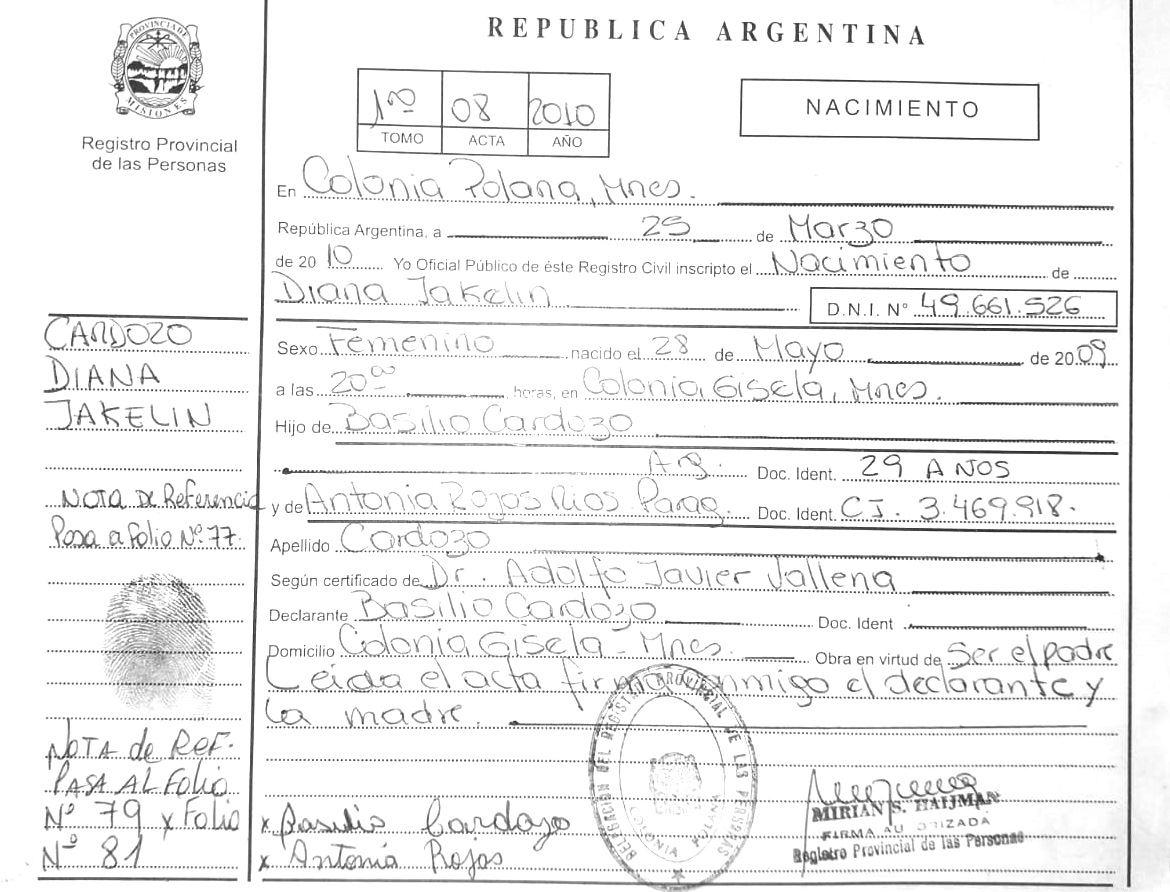 REPUBLICA ARGENTINA
PROVINCIA DE
MISIONES
Registro Provincial
de las Personas
1º 08 2010
TOMO ACTA AÑO
NACIMIENTO
En Colonia Polana, Mnes.
República Argentina, a 25 de Marzo
de 2010 Yo Oficial Público de éste Registro Civil inscripto el Nacimiento de
Diana Jakelin D.N.I. Nº 49.661.526
CARDOZO
DIANA
JAKELIN
Sexo Femenino nacido el 28 de Mayo de 2009
a las 20 00 horas, en Colonia Gisela, Mnes.
Hijo de Basilio Cardozo
Arg. Doc. Ident. 29 AÑOS
NOTA DE Referencia
Pasa a Folio Nº 77.
y de Antonia Rojas Rios Parag. Doc. Ident. CI. 3.469.918.
Apellido Cardozo
Según certificado de Dr. Adolfo Javier Jallena
Declarante Basilio Cardozo Doc. Ident
Domicilio Colonia Gisela - Mnes. Obra en virtud de Ser el padre
Leida el acta firma conmigo el declarante y
la madre.
NOTA de REF.
PASA AL Folio
Nº 79 x Folio
Nº 81
x Basilio Cardozo
x Antonia Rojas
DELEGACION DEL REGISTRO PROVINCIAL DE LAS PERSONAS
COLONIA POLANA
MIRIAN S. HAIJMAN
FIRMA AUTORIZADA
Registro Provincial de las Personas